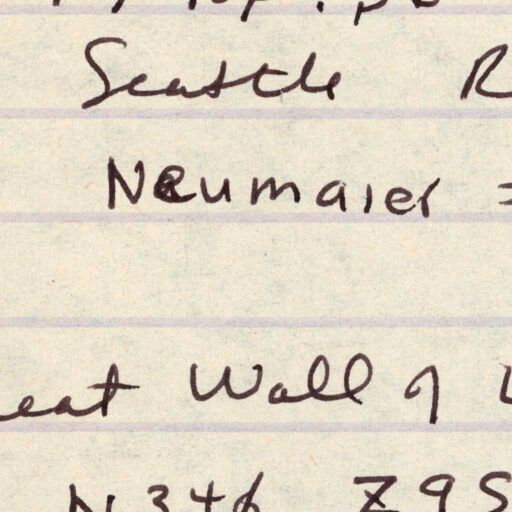 Seattle R
Neumaier =
eat Wall of
N346 Z95